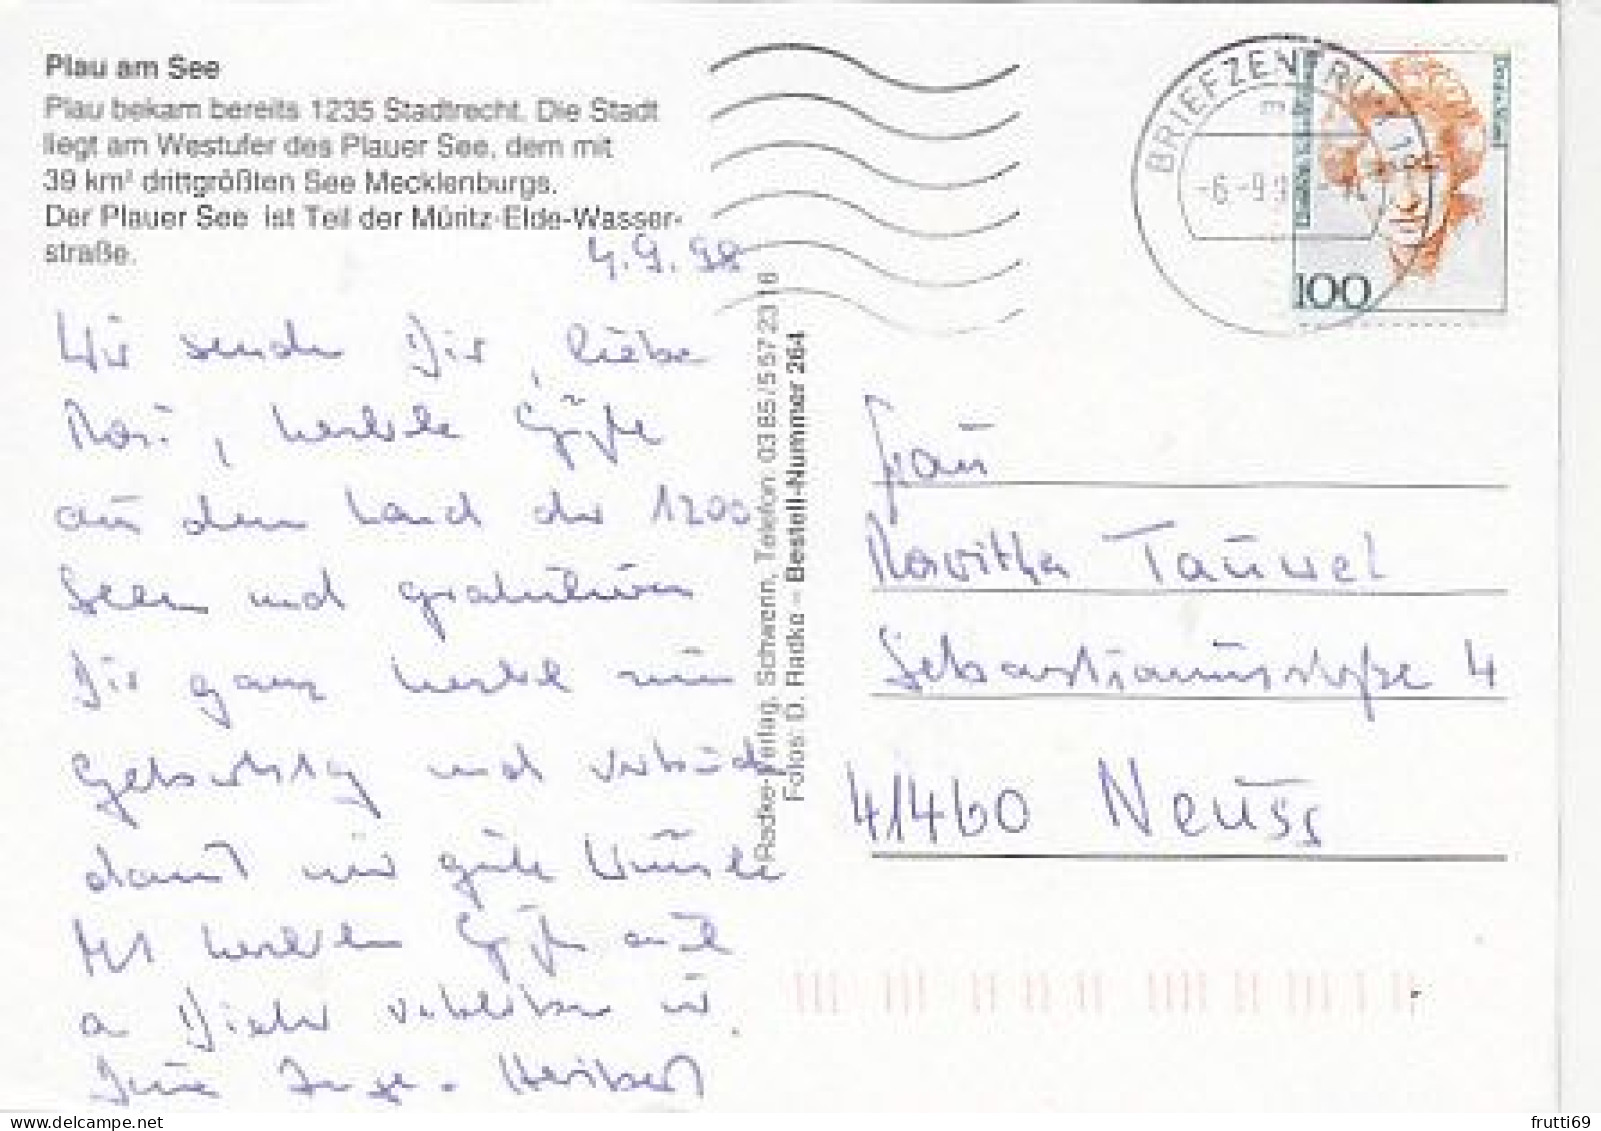 Plau am See
Plau bekam bereits 1235 Stadtrecht. Die Stadt
liegt am Westufer des Plauer See, dem mit
39 km² drittgrößten See Mecklenburgs.
Der Plauer See ist Teil der Müritz-Elde-Wasser-
straße.
4.9.98
Wir senden Dir, liebe
Rosi, herzliche Grüße
aus dem Land der 1200
Seen und gratulieren
Dir ganz herzlich zum
Geburtstag und verbinden
damit wir gute Wünsche
Mit herzlichen Grüßen auch
a Dieter verbleiben wir
Inge - Heribert
Radke-Verlag, Schwerin, Telefon 03 85 / 5 57 23 16
Fotos: D. Radke – Bestell-Nummer 264
BRIEFZENTRUM
-6.-9.9
100
Frau
Roswitha Tauwel
Sebastianusstraße 4
41460 Neuss
frutti69